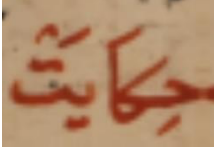 حِكَايَتْ